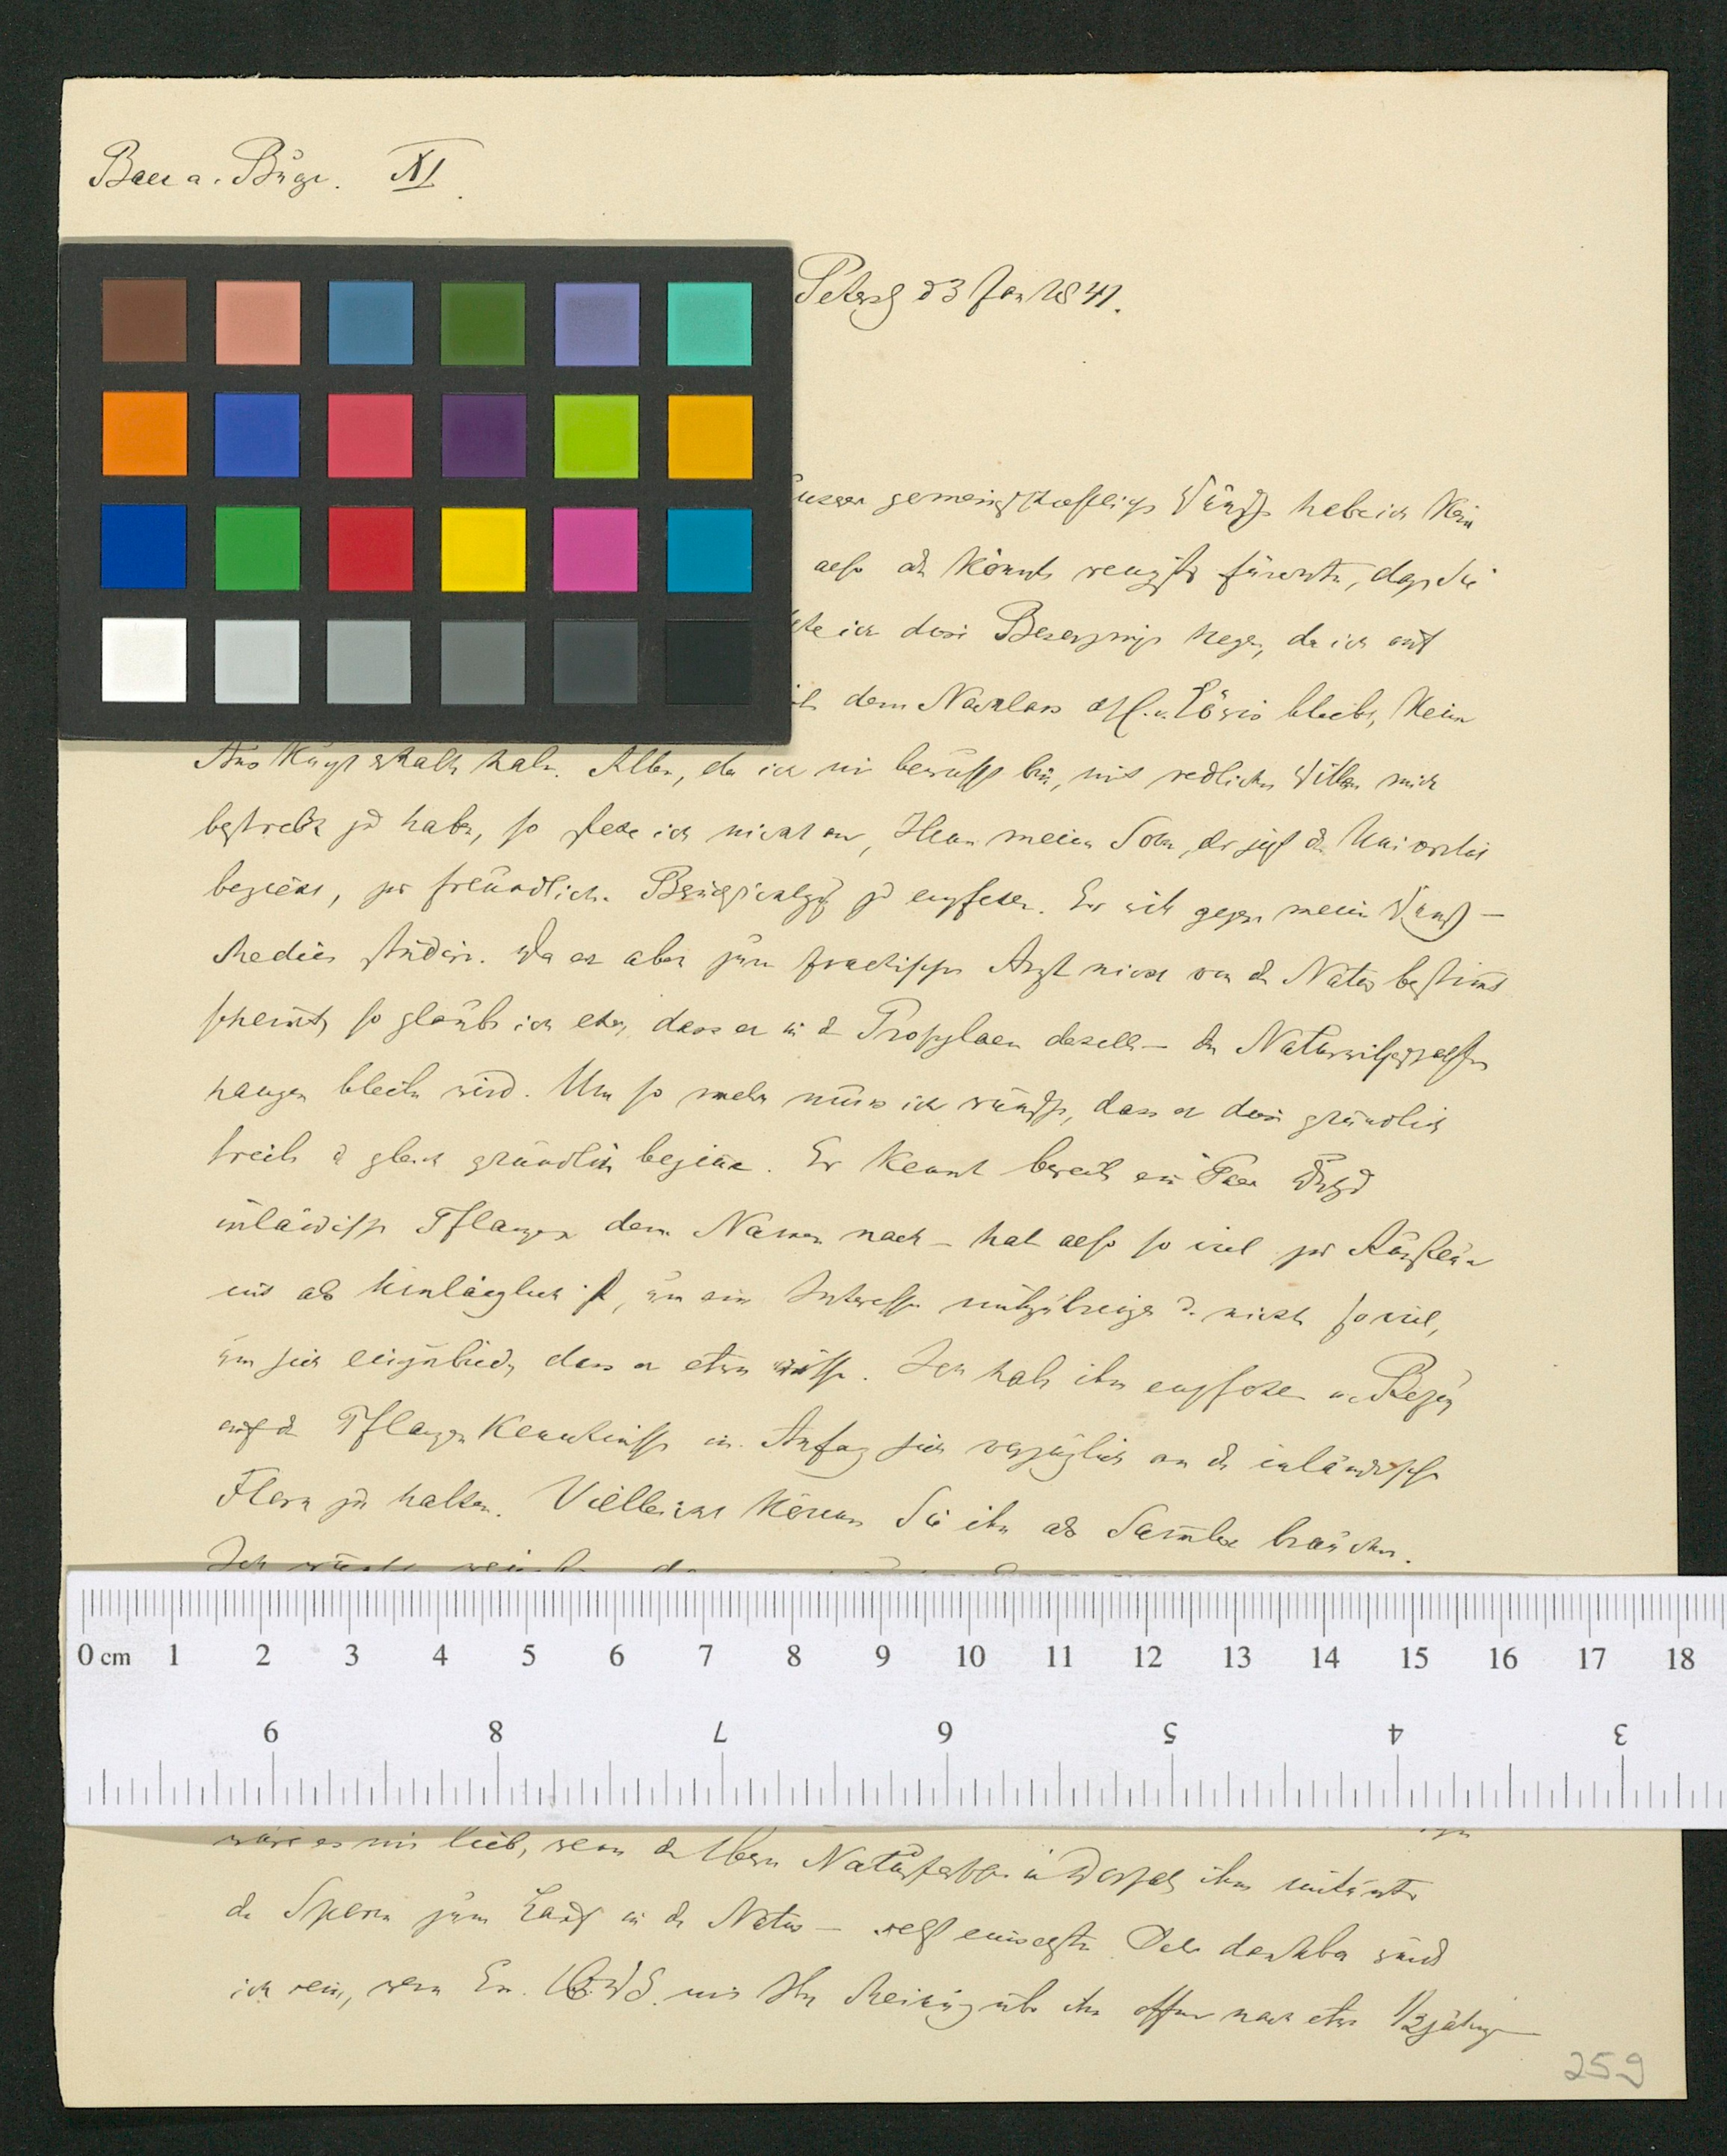 Baer a. Bunge. XI.
Petersb d 3 Jan 1841.
unserer gemeinschaftlichen Wünsche habe ich kein
also könnte wenigstens fürchten, dass Sie
ich diese Besorgniss hegen, da ich auf
dem Nachlass d H. v. Löwis bleibt, keine
Auskunft erhalten habe. Allein, da ich mir bewusst bin, mit redlichem Willen mich
bestrebt zu haben, so stehe ich nicht an, Ihnen meinen Sohn, der jetzt die Universität
bezieht, zur freundlichen Berücksichtigung zu empfehlen. Er will gegen meinen Wunsch –
Medicin studiren. Da er aber zum practischen Arzt nicht von der Natur bestimmt
scheint, so glaube ich eher, dass er in den Propylaen derselben – den Naturwissenschaften
hangen bleiben wird. Um so mehr muss ich wünschen, dass er diese gründlich
treibe u gleich gründlich beginne. Er kennt bereits ein Paar Dutzend
inländische Pflanzen dem Namen nach – hat also so viel zur
als hinlänglich ist, um ein Interesse mitzubringen u. nicht so viel,
um sich einzubilden, dass er etwas wisse. Ich habe ihm empfohlen in Bezug
auf die Pflanzen Kenntnisse im Anfang sich vorzüglich an die inländische
Flora zu halten. Vielleicht können Sie ihn als Sammler brauchen.
Ich
wäre es mir lieb, wenn die Herrn Naturforscher in Dorpat ihm mitunter
die Sporen zum Lauf in der Natur – selbst einsetzten. Sehr dankbar würde
ich sein, wenn Ew. mir Ihre Meinung über ihn offen nach etwa 1/2 jähriger
259
0 cm 1 2 3 4 5 6 7 8 9 10 11 12 13 14 15 16 17 18
9 8 7 6 5 4 3